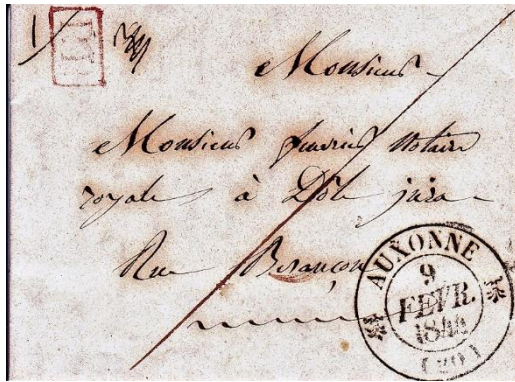 Monsieur
Monsieur notaire
royale à Dôle jura
Rue Besançon
AUXONNE
9
FEVR.
1844
(20)